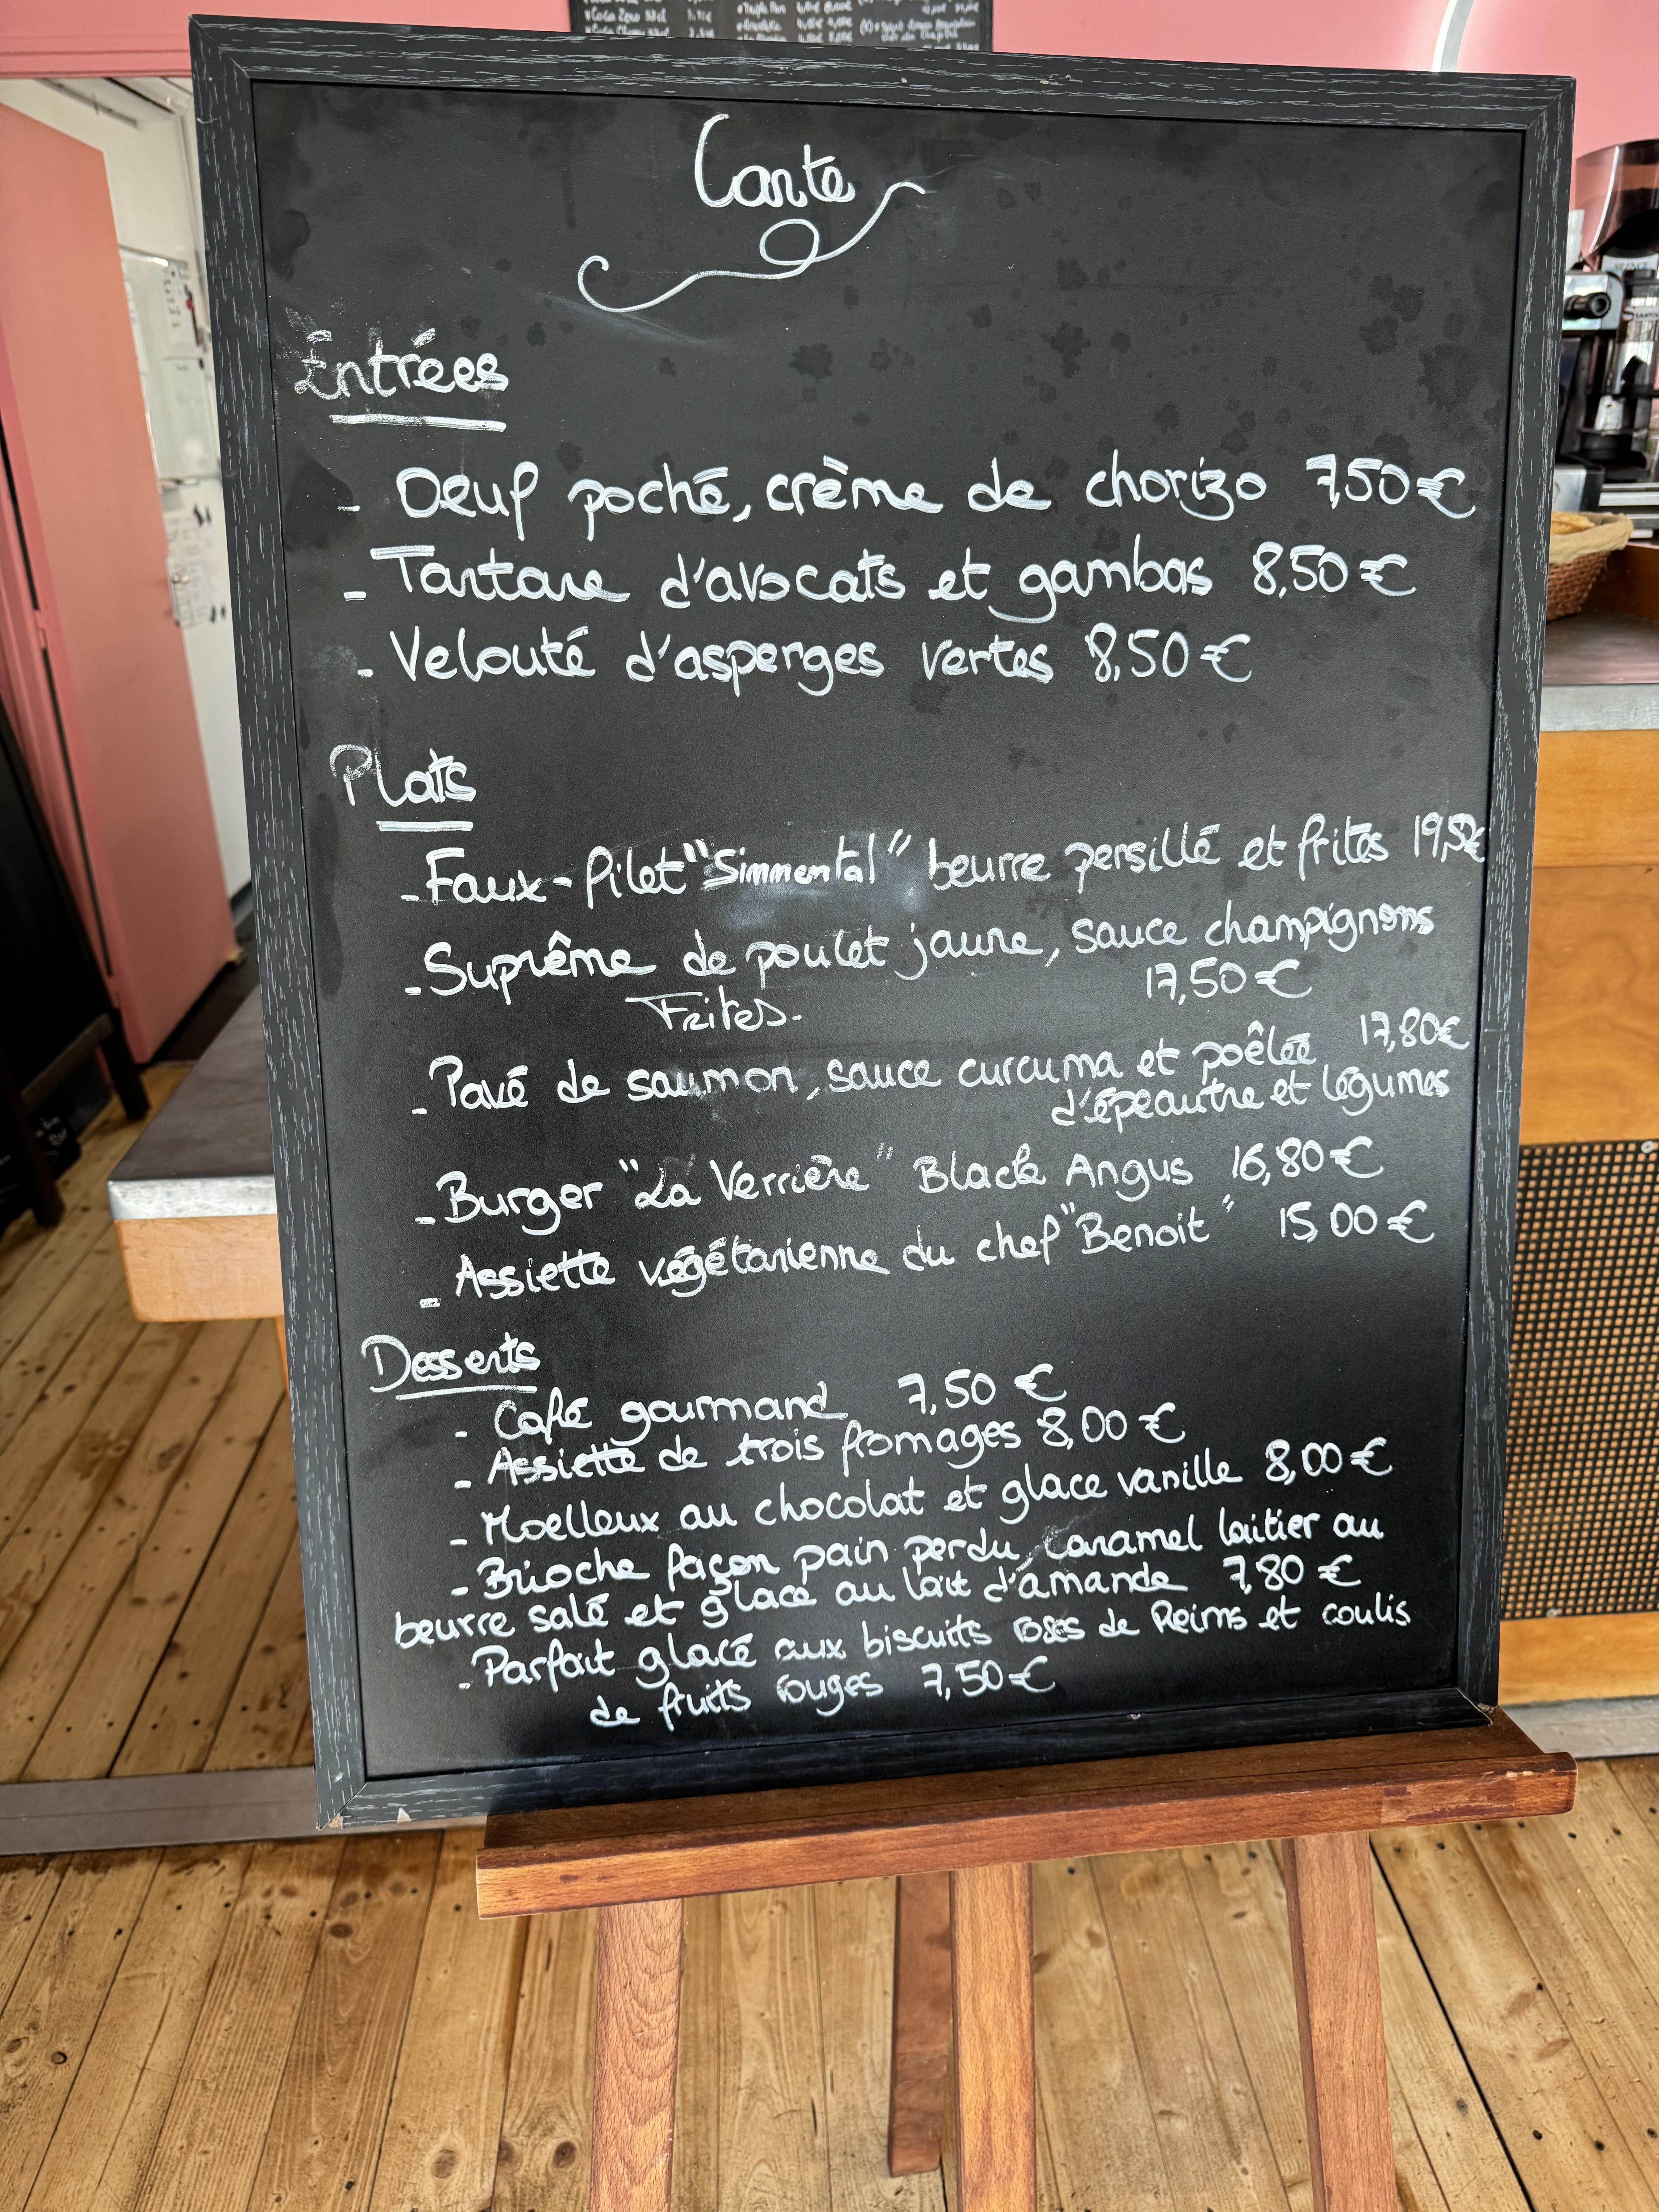 Carte
Entrées
- Oeuf poché, crème de chorizo 7,50€
- Tartare d'avocats et gambas 8,50€
- Velouté d'asperges vertes 8,50€
Plats
- Faux-filet "Simmental" beurre persillé et frites 19,50€
- Suprême de poulet jaune, sauce champignons
Frites. 17,50€
- Pavé de saumon, sauce curcuma et poêlée 17,80€
d'épeautre et légumes
- Burger "La Verrière" Black Angus 16,80€
- Assiette végétarienne du chef "Benoit" 15,00€
Desserts
- Café gourmand 7,50 €
- Assiette de trois fromages 8,00 €
- Moelleux au chocolat et glace vanille 8,00€
- Brioche façon pain perdu, caramel laitier au
beurre salé et glace au lait d'amande 7,80 €
- Parfait glacé aux biscuits roses de Reims et coulis
de fruits rouges 7,50€